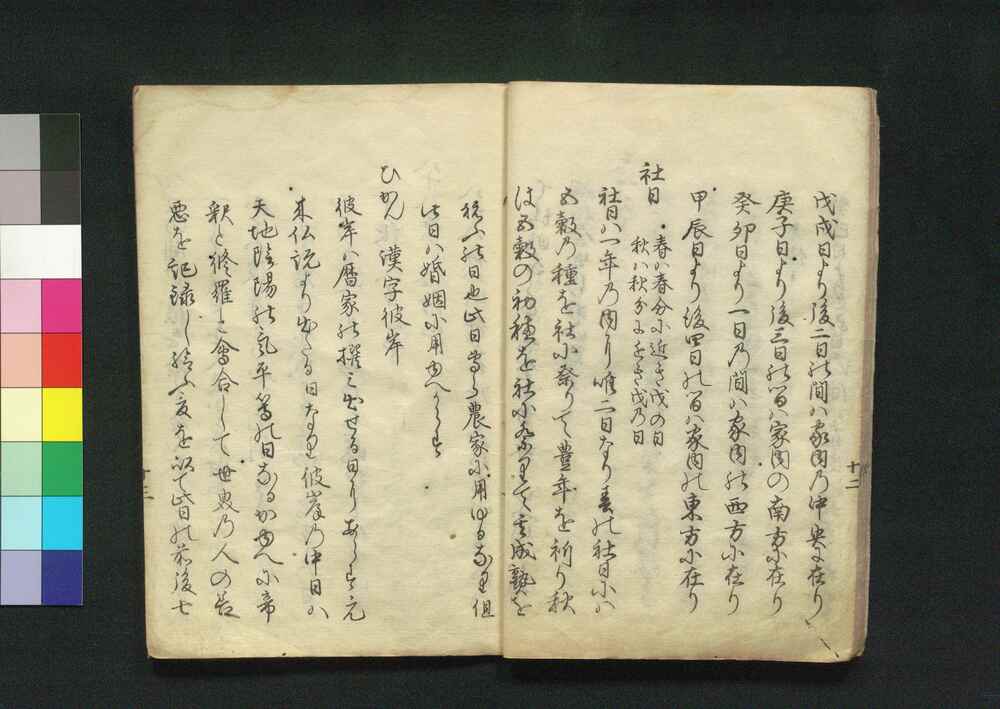 戊戌日より後二日の間ハ家内乃中央に在り
庚子日より後三日の間ハ家内の南方に在り
癸卯日より一日乃間ハ家内の西方に在り
甲辰日より後四日の間ハ家内の東方に在り
社日
春ハ春分に近き戊の日
秋ハ秋分に近き戊乃日
社日ハ一年乃内より唯二日なり春の社日にハ
五穀乃種を社に祭りて豊年を祈り秋
は五穀の初穂を社に祭りて其成熟を
祝ふの日也此日専ら農家に用ゆるなり但
此日ハ婚姻に用ゆへからす
ひかん 漢字彼岸
彼岸ハ暦家の撰ミ出せる日にあらす元
来仏説より出たる日なり彼岸乃中日ハ
天地陰陽の気平等の日なるかゆへに帝
釈と修羅と会合して世界乃人の善
悪を記録し給ふ故を以て此日の前後七
十二
十三